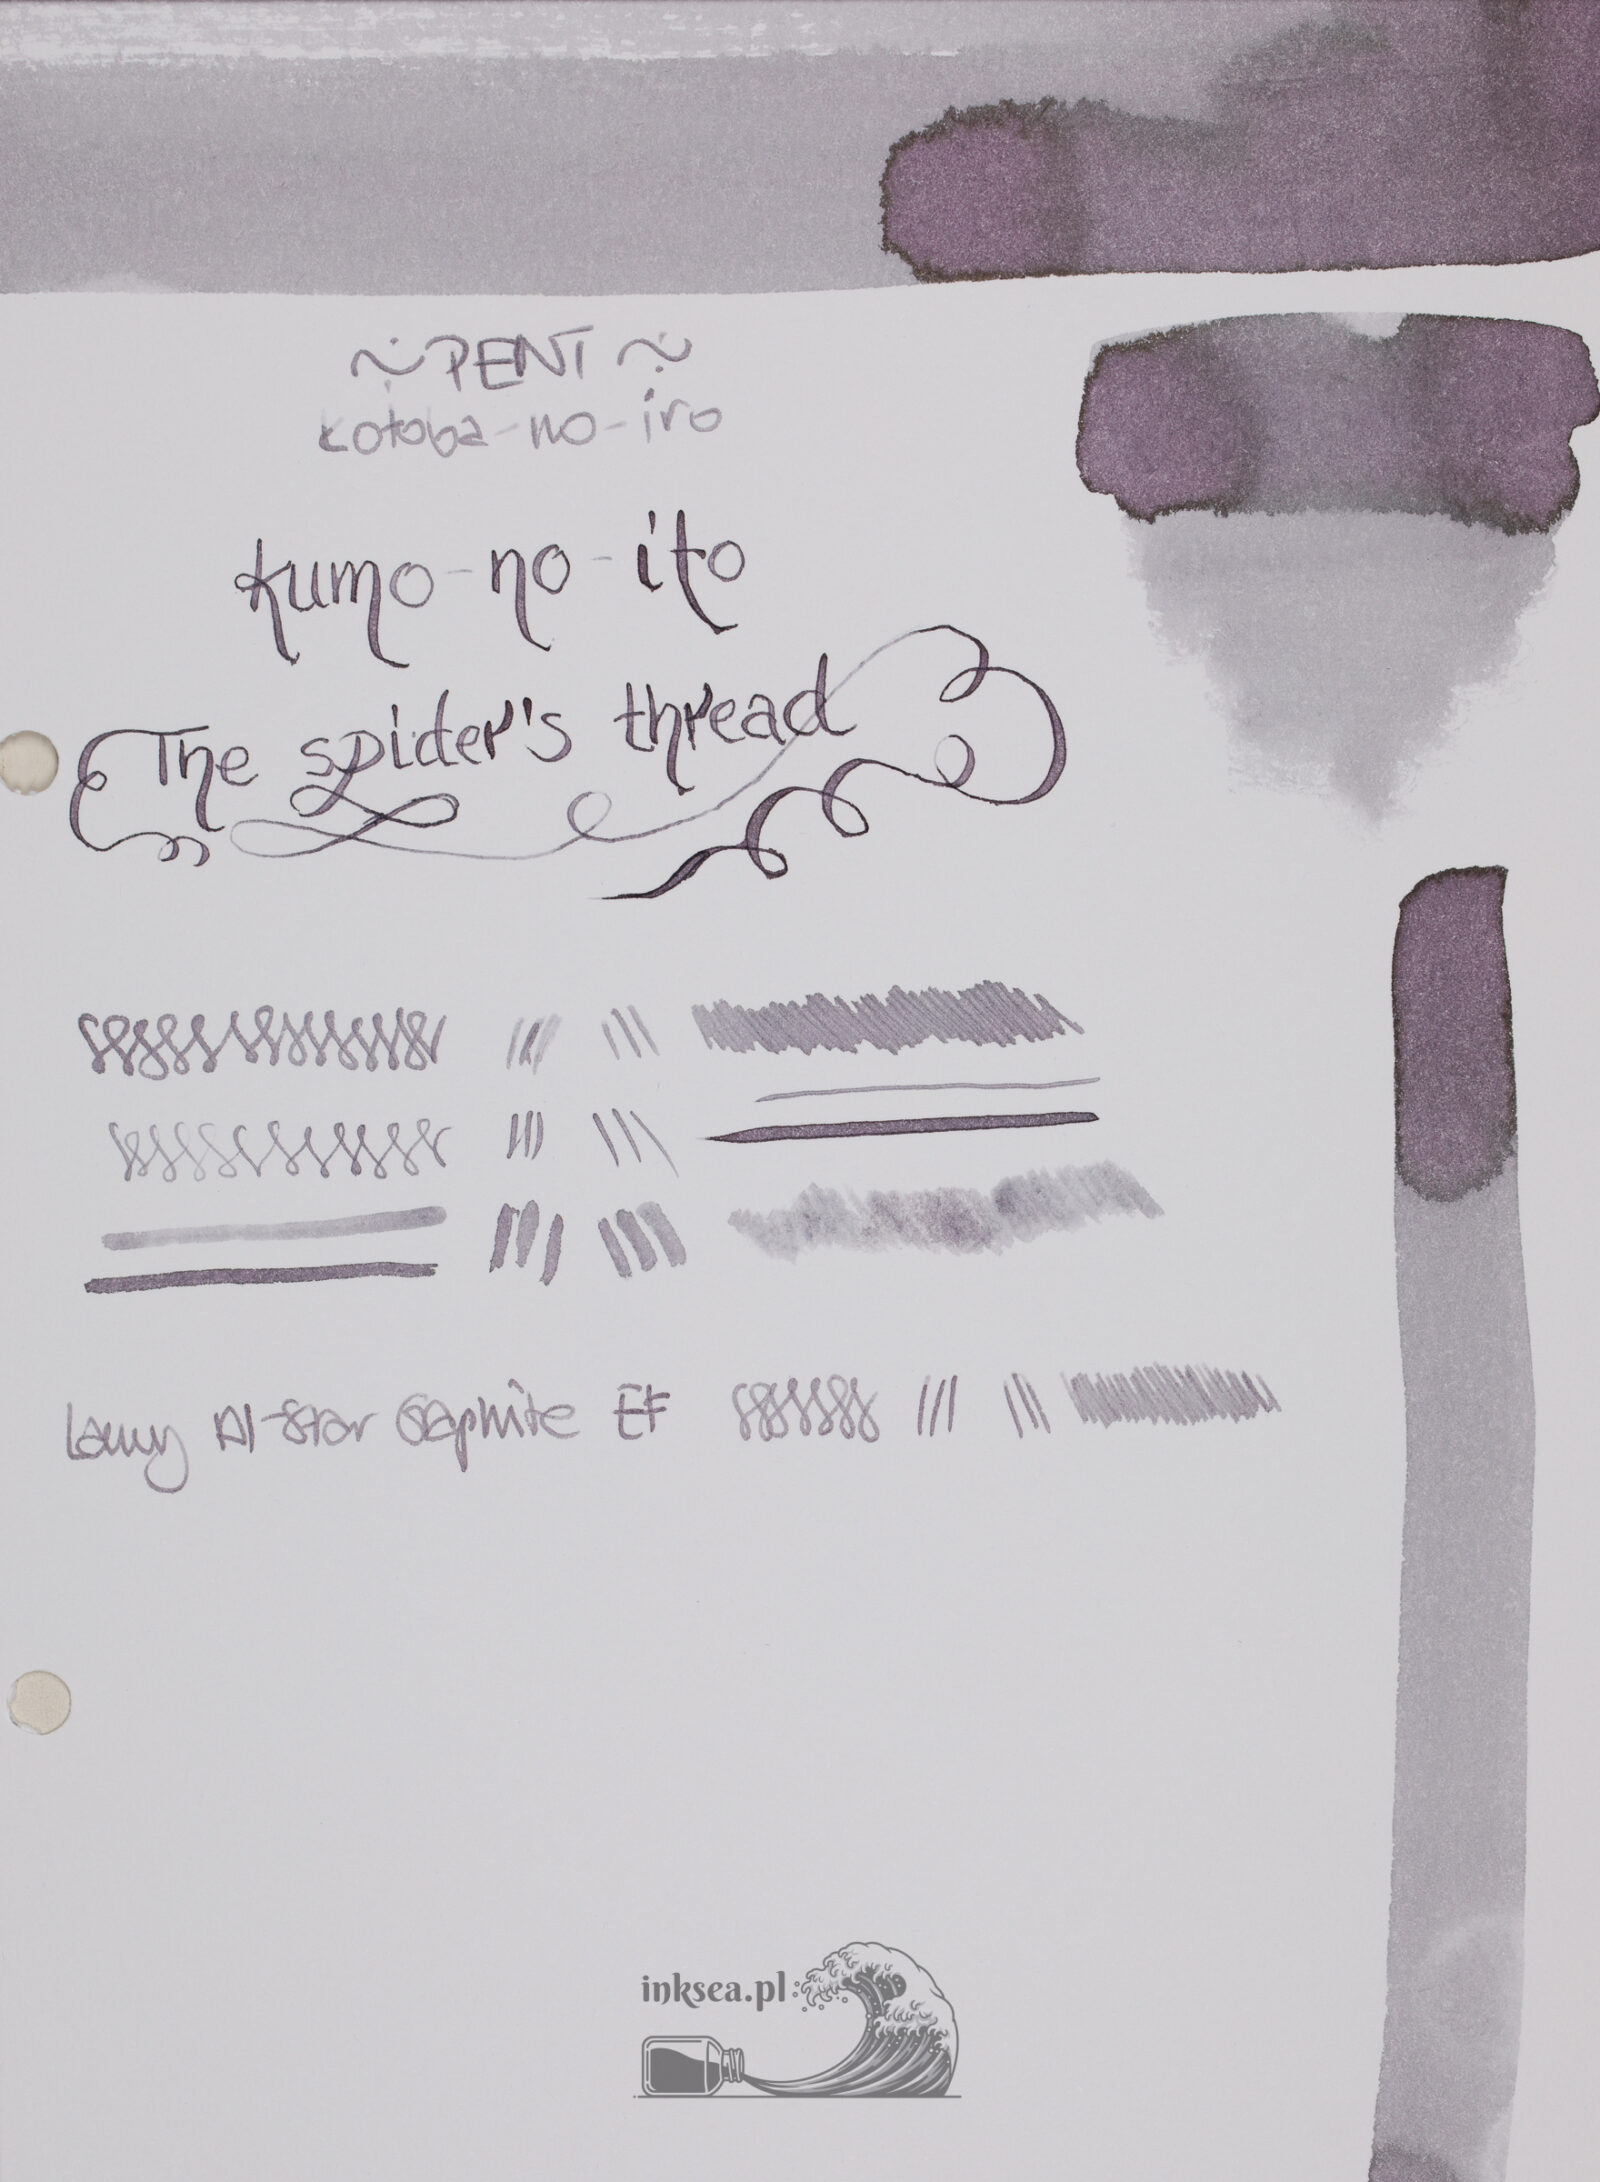 ~ PENT ~
kotoba-no-iro
kumo-no-ito
The spider's thread
Lamy Al-Star Graphite EF
inksea.pl